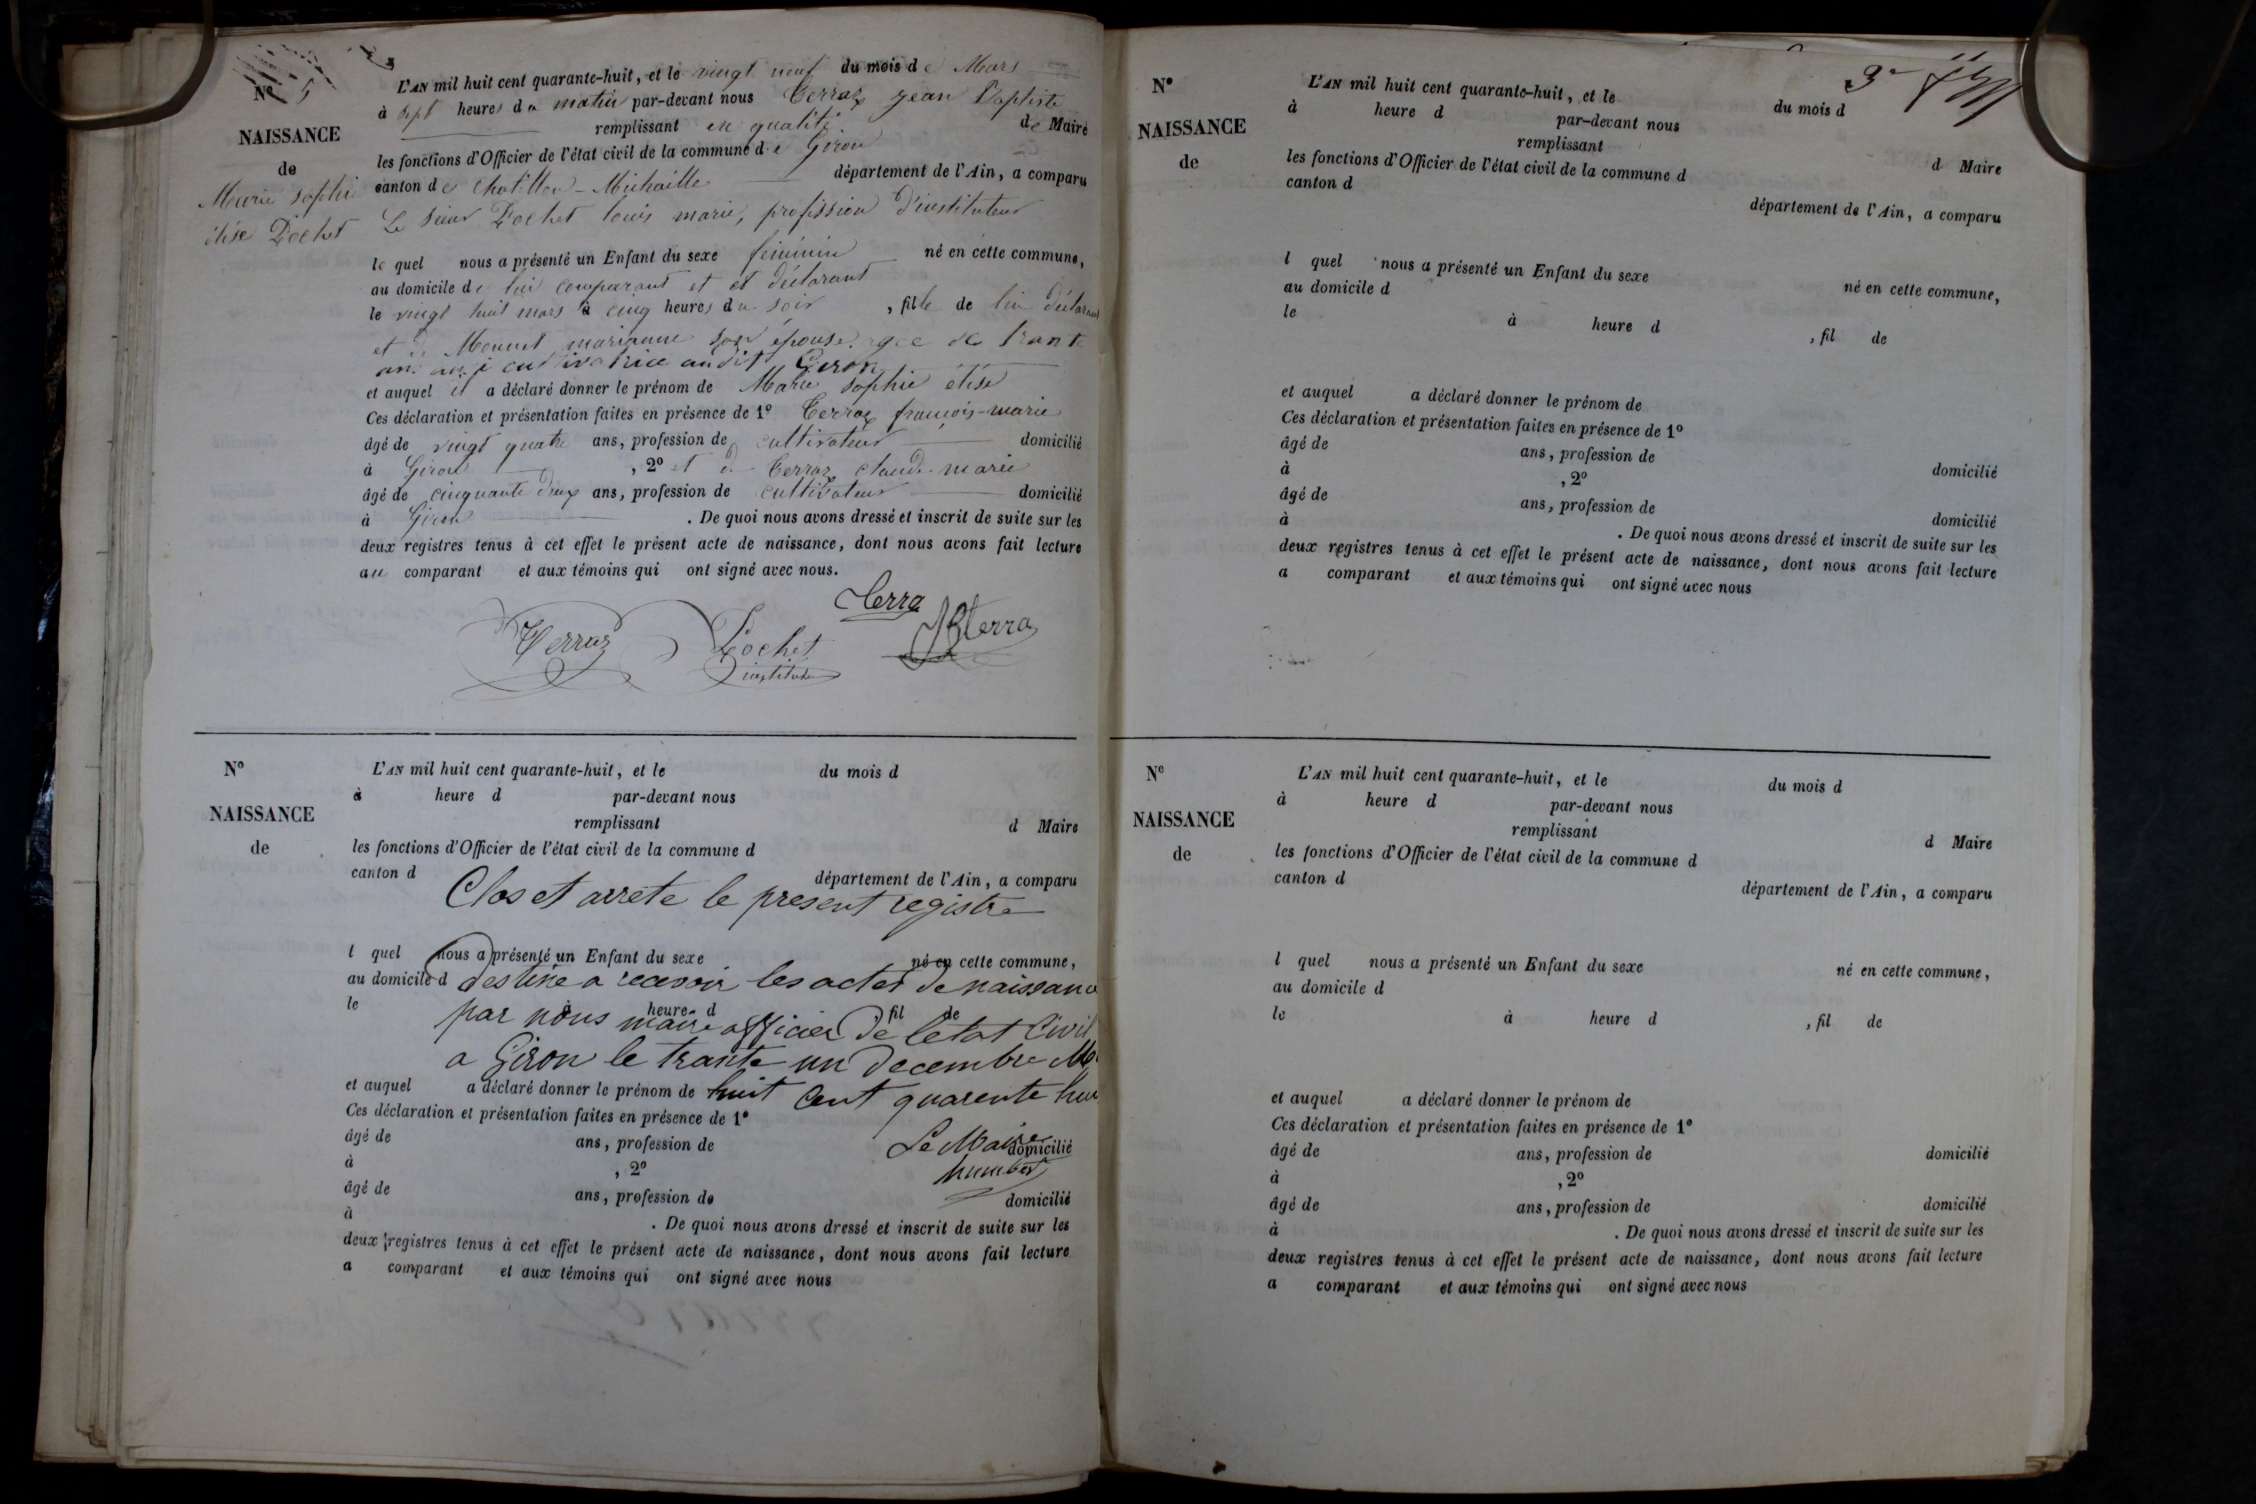 N° 5
NAISSANCE
de
Marie Sophie
élise Pochet
L'AN mil huit cent quarante-huit, et le vingt neuf du mois de Mars
à sept heures du matin par-devant nous Terraz jean Baptiste
remplissant en qualité de Maire
les fonctions d'Officier de l'état civil de la commune de Giron
canton de Chatillon-Michaille département de l'Ain, a comparu
Le sieur Pochet louis marie, profission d'instituteur
le quel nous a présenté un Enfant du sexe féminin né en cette commune,
au domicile de lui comparant et et déclarant
le vingt huit mars à cinq heures du soir, fille de lui déclarant
et de marianne son épouse agée de trante
ans cultivatrice audit Giron
et auquel il a déclaré donner le prénom de Marie sophie élise
Ces déclaration et présentation faites en présence de 1° Terraz françois-marie
âgé de vingt quatre ans, profession de cultivateur domicilié
à Giron, 2° et de Terraz claude-marie
âgé de cinquante deux ans, profession de cultivateur domicilié
à Giron. De quoi nous avons dressé et inscrit de suite sur les
deux registres tenus à cet effet le présent acte de naissance, dont nous avons fait lecture
au comparant et aux témoins qui ont signé avec nous.
Terra
Terraz Pochet JBterra
institut
N°
NAISSANCE
de
L'AN mil huit cent quarante-huit, et le du mois d
à heure d par-devant nous
remplissant d Maire
les fonctions d'Officier de l'état civil de la commune d
canton d département de l'Ain, a comparu
Clos et arrete le present registre
l quel nous a présenté un Enfant du sexe né en cette commune,
au domicile d destine a recevoir les actes de naissance
le à heure d fil de
par nous maire officier de l'etat Civil
a Giron le trante un decembre
et auquel a déclaré donner le prénom de huit Cent quarente
Ces déclaration et présentation faites en présence de 1°
âgé de ans, profession de Le Maire domicilié
à , 2° humbert
âgé de ans, profession de domicilié
à . De quoi nous avons dressé et inscrit de suite sur les
deux registres tenus à cet effet le présent acte de naissance, dont nous avons fait lecture
a comparant et aux témoins qui ont signé avec nous
N°
NAISSANCE
de
L'AN mil huit cent quarante-huit, et le du mois d
à heure d par-devant nous
remplissant d Maire
les fonctions d'Officier de l'état civil de la commune d
canton d département de l'Ain, a comparu
l quel nous a présenté un Enfant du sexe né en cette commune,
au domicile d
le à heure d , fil de
et auquel a déclaré donner le prénom de
Ces déclaration et présentation faites en présence de 1°
âgé de ans, profession de domicilié
à , 2°
âgé de ans, profession de domicilié
à . De quoi nous avons dressé et inscrit de suite sur les
deux registres tenus à cet effet le présent acte de naissance, dont nous avons fait lecture
a comparant et aux témoins qui ont signé avec nous
N°
NAISSANCE
de
L'AN mil huit cent quarante-huit, et le du mois d
à heure d par-devant nous
remplissant d Maire
les fonctions d'Officier de l'état civil de la commune d
canton d département de l'Ain, a comparu
l quel nous a présenté un Enfant du sexe né en cette commune,
au domicile d
le à heure d , fil de
et auquel a déclaré donner le prénom de
Ces déclaration et présentation faites en présence de 1°
âgé de ans, profession de domicilié
à , 2°
âgé de ans, profession de domicilié
à . De quoi nous avons dressé et inscrit de suite sur les
deux registres tenus à cet effet le présent acte de naissance, dont nous avons fait lecture
a comparant et aux témoins qui ont signé avec nous